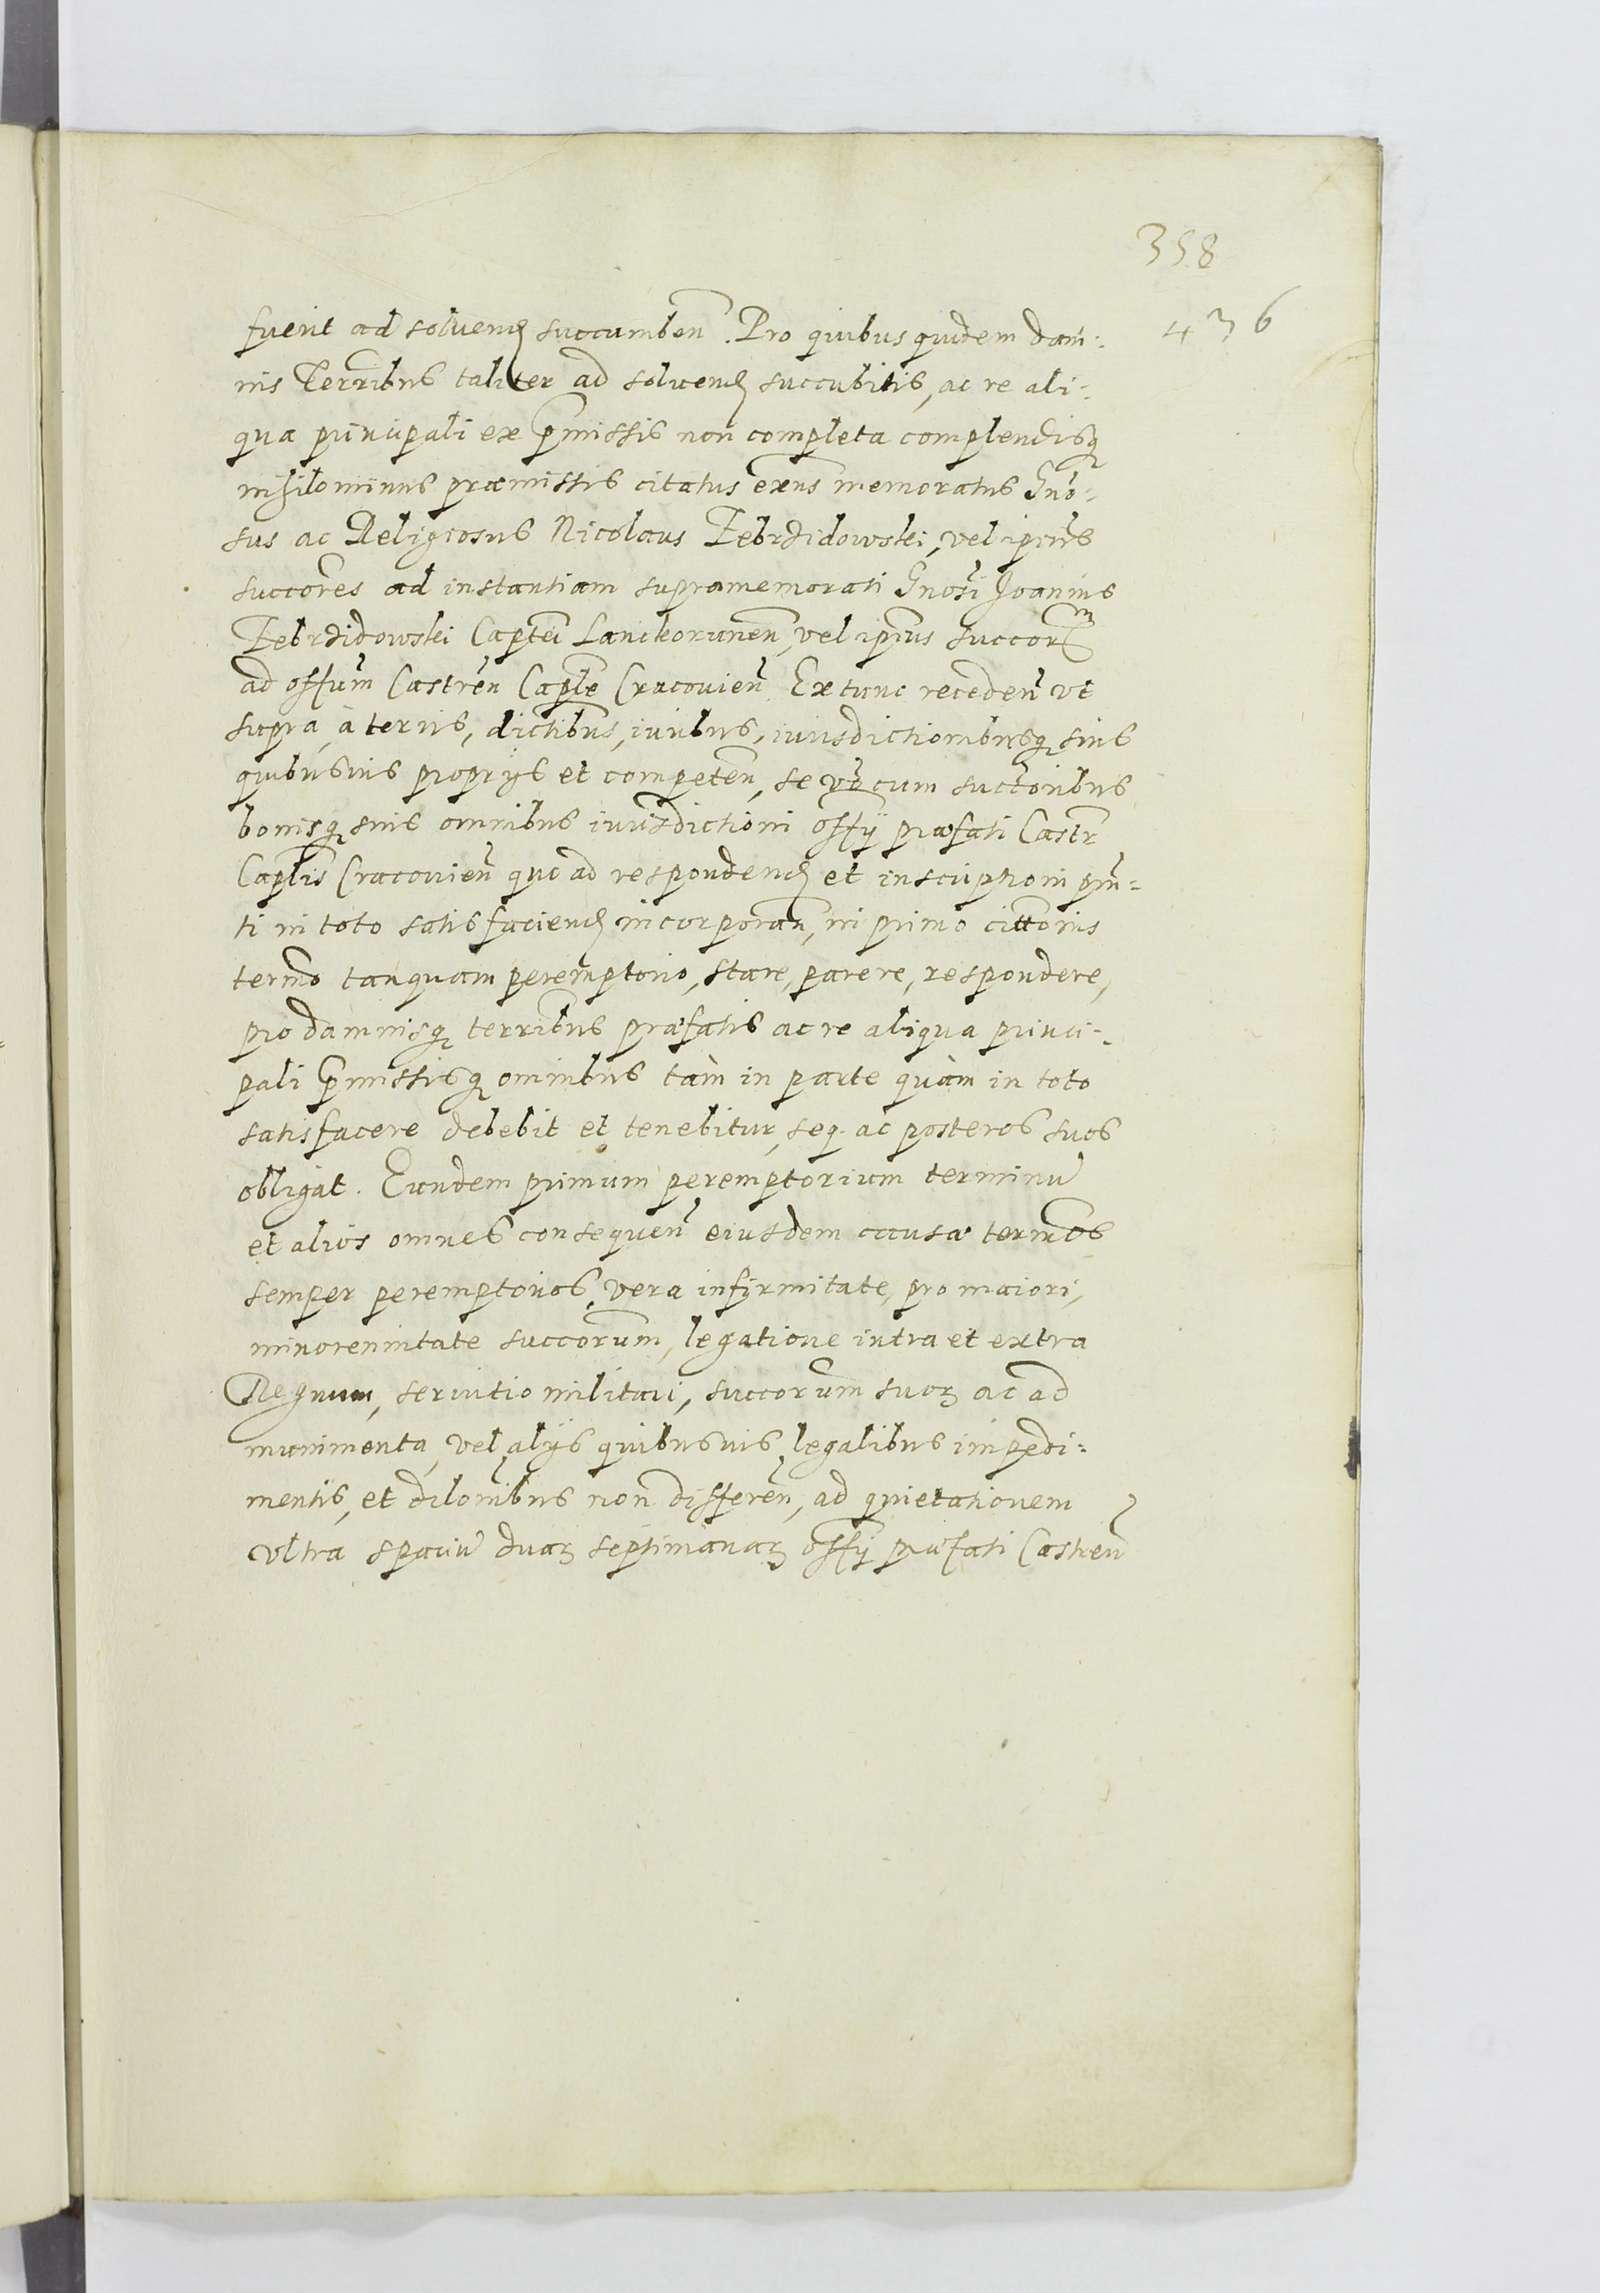 358
436
fuerit ad soluend succumben. Pro quibus quidem dam:
nis Terribus taliter ad soluend succubitis, ac re ali:
qua principali ex pmissis non completa complendisq
nihilominus praemissis citatus exns memoratus Gno:
sus ac Religiosus Nicolaus Zebrzidowski, vel ipius
succores ad instantiam supramemorati Gnosi Joannis
Zebrzidowski Captei Lanckorunen, vel ipius succorm
ad offum Castren Caple Cracouien Ex tunc receden vt
supra, à terris, dictibus, iuribus, iurisdictionibusq suis
quibusuis proprijs et competen, se vo cum suctoribus
bonisq suis omnibus iurisdictioni offij praefati Castr
Caplis Cracouien quo ad respondend et inscriptioni pn=
ti in toto satisfaciend incorporan, in primo cittonis
termo tanquam peremptorio, stare, parere, respondere,
pro damnisq terribus praefatis ac re aliqua princi-
pali pmissisq omnibus tàm in parte quàm in toto
satisfacere debebit et tenebitur, seq ac posteros suos
obligat. Eundem primum peremptorium terminu
et alios omnes consequen eiusdem causae termos
semper peremptorios, vera infirmitate, pro maiori,
minorennitate succorum, legatione intra et extra
Regnum, seruitio militari, succorum suor ac ad
munimenta, vel alijs quibusuis legalibus impedi:
mentis, et dilonibus non differen, ad quietationem
vltra spaciu duar septimanar offij praefati Castren